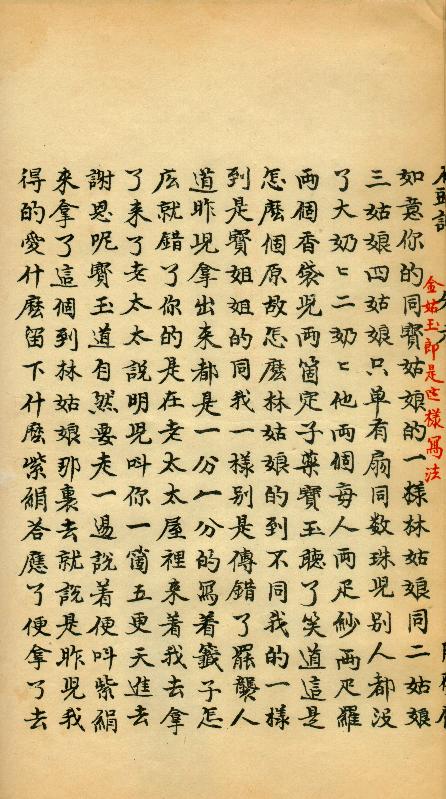 金姑玉郎是这樣寫法
如意你的同寳姑娘的一樣林姑娘同二姑娘
三姑娘四姑娘只单有扇同数珠児别人都没
了大奶〻二奶〻他兩個每人兩疋紗兩疋羅
兩個香袋児兩箇定子藥寳玉聼了笑道這是
怎麽個原故怎麽林姑娘的到不同我的一樣
到是寳姐姐的同我一樣别是傳錯了罷襲人
道昨児拿出来都是一分一分的寫着籤子怎
庅就錯了你的是在老太太屋裡来着我去拿
了来了老太太說明児呌你一箇五更天進去
謝恩呢寳玉道自然要走一遍說着便呌紫絹
來拿了這個到林姑娘那裏去就說是昨児我
得的愛什麽留下什麽紫絹答應了便拿了去